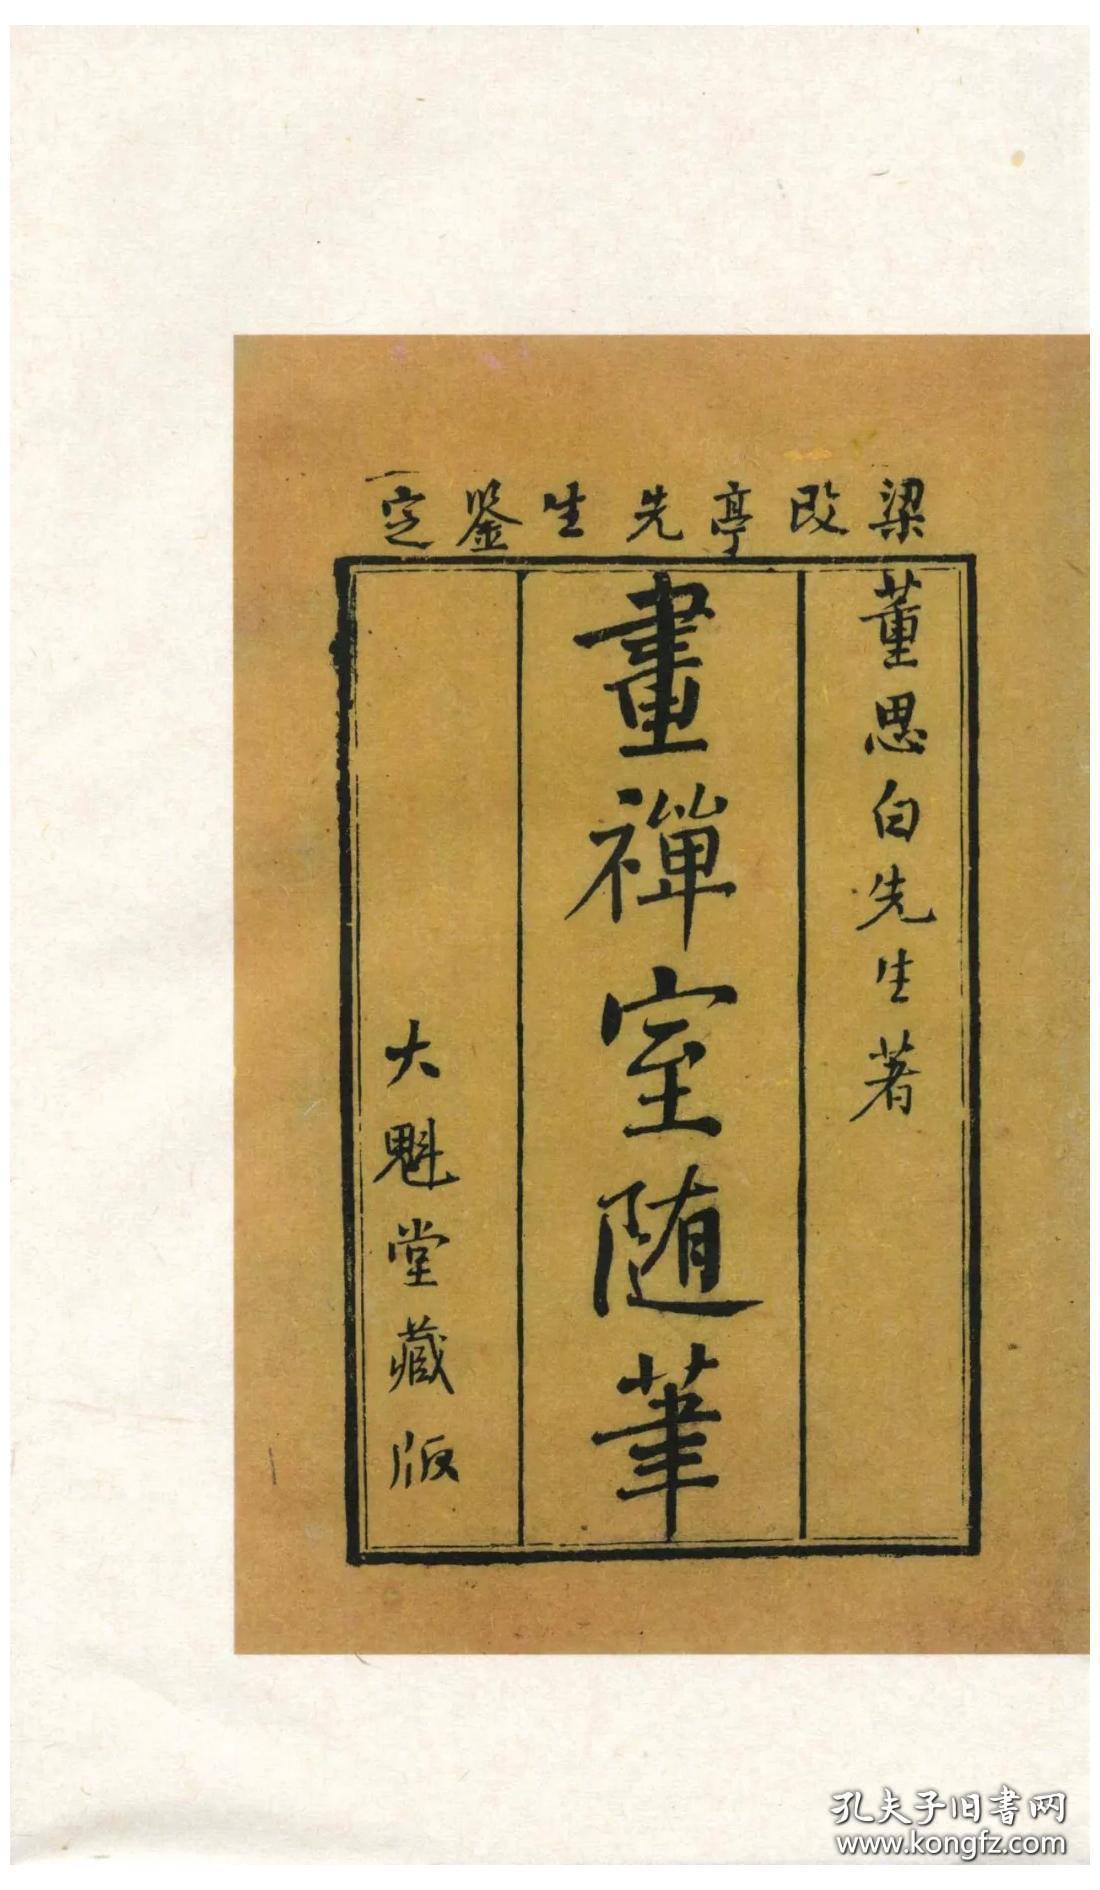 梁改亭先生鉴定
董思白先生著
畫禪室随筆
大魁堂藏版
孔夫子旧書网
www.kongfz.com